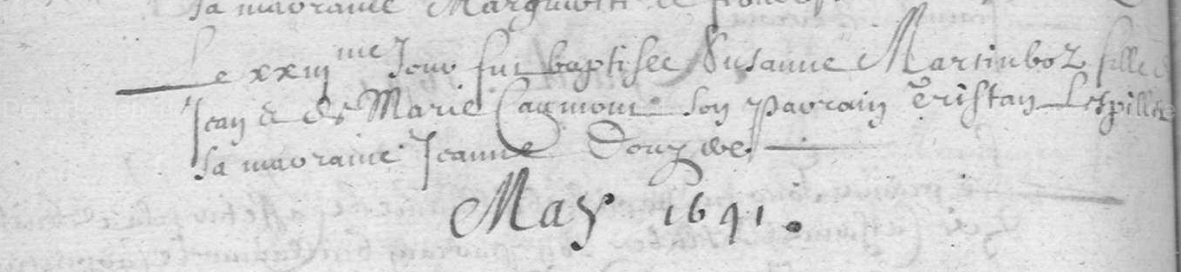 sa marraine Marguerite de
Le xxiij me Jour fut baptisee Susanne Martinboz fille de
Jean & de Marie Caumont son parrain Tristan Lespille
sa marraine Jeanne Douzdes
May 1641.